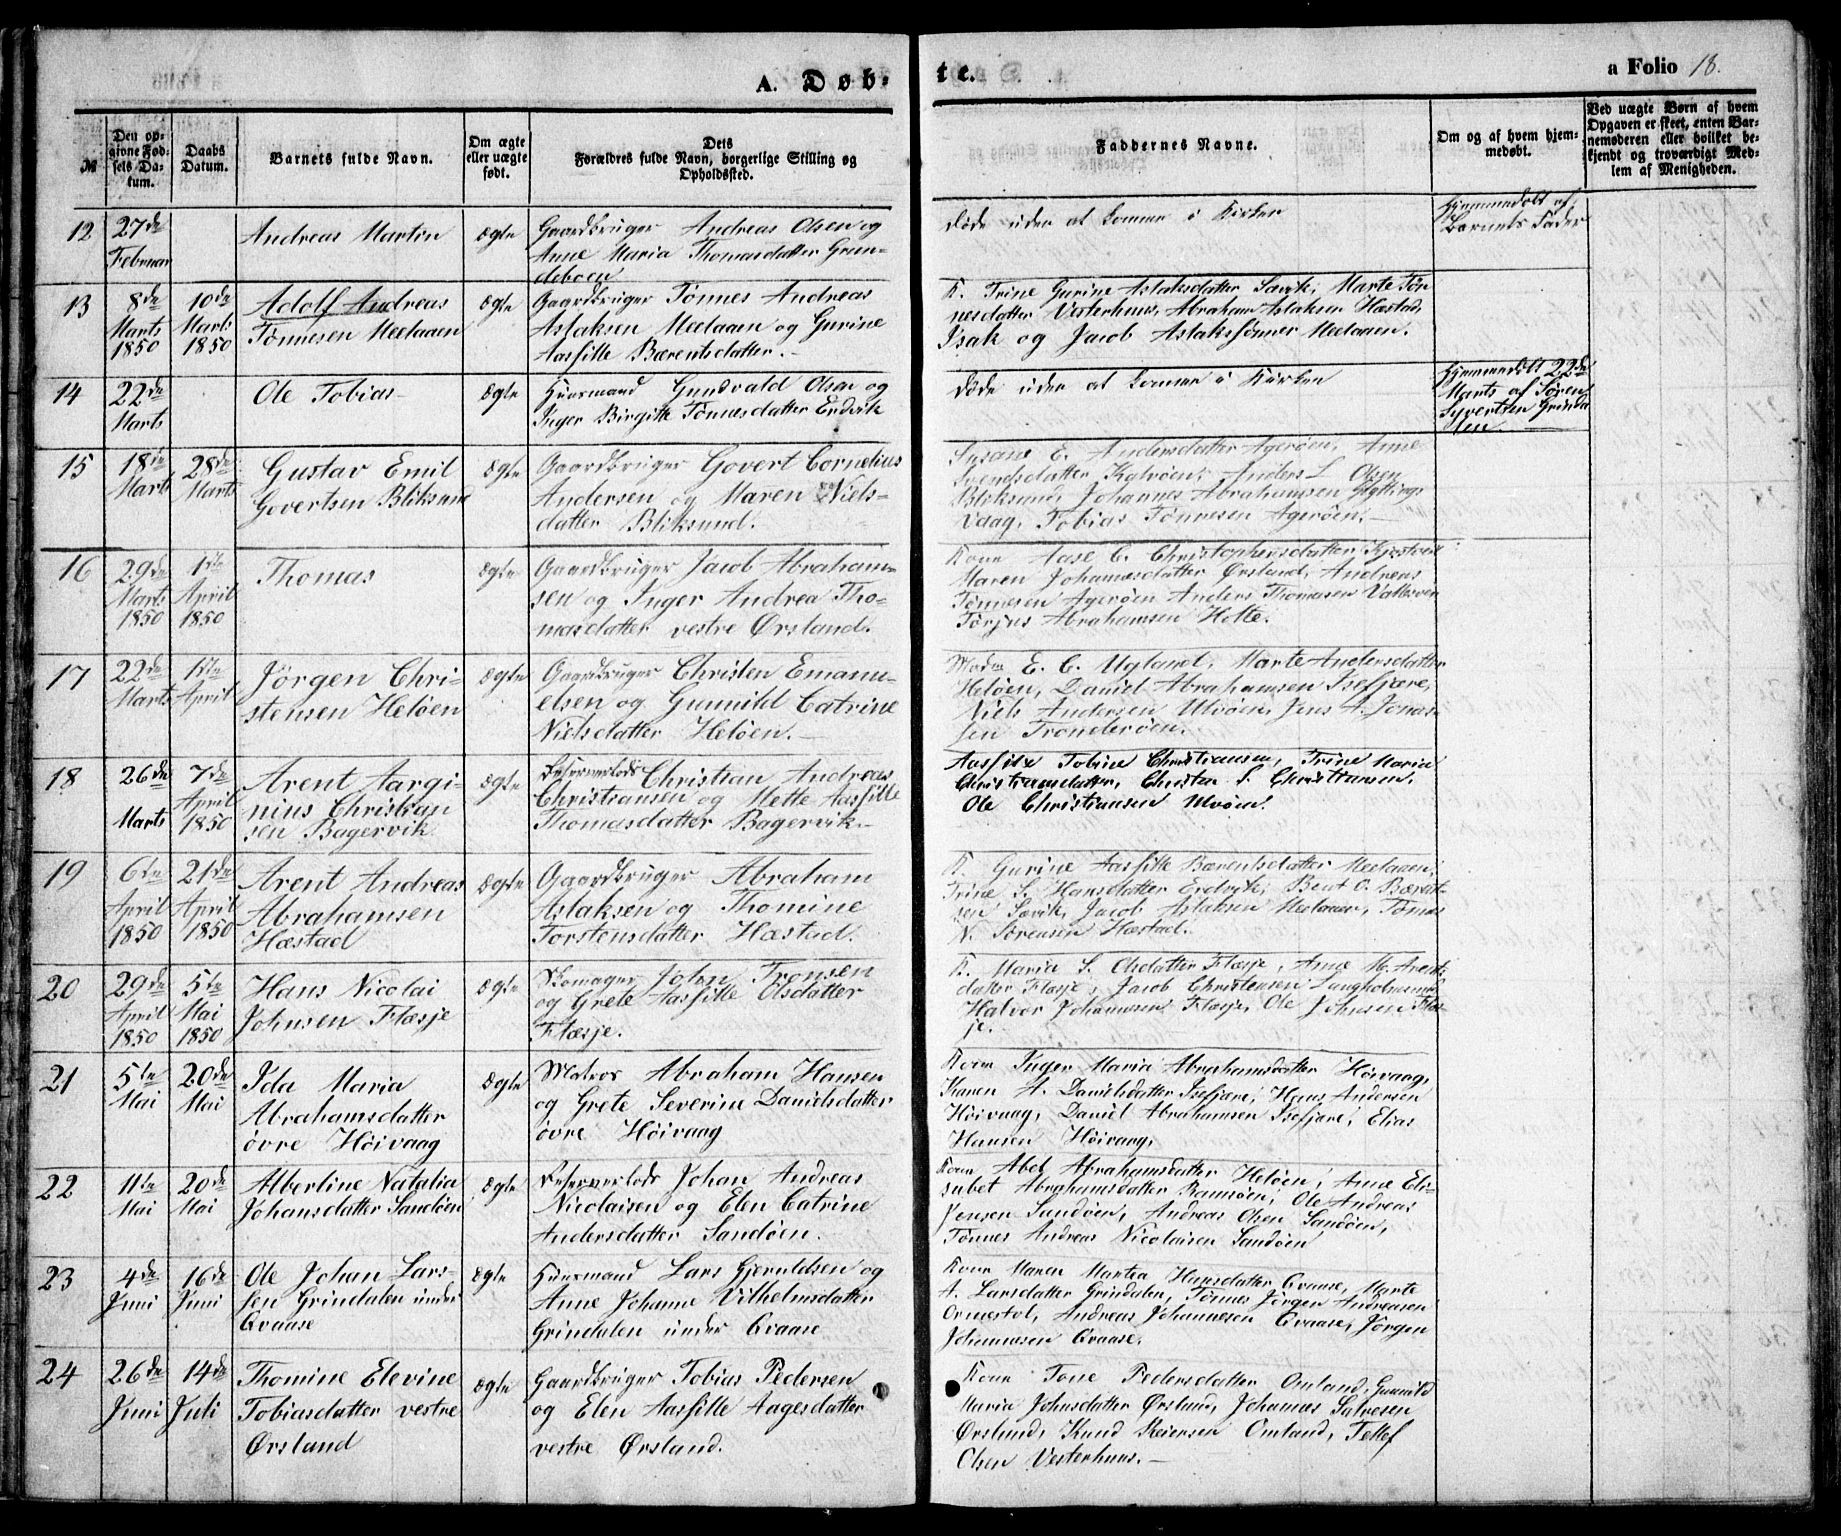 A. Døb- te. a Folio 18.
№
Den op-
givne Fød-
sels Da-
tum.
Daabs
Datum.
Barnets fulde Navn.
Om ægte
eller uægte
født.
Dets
Forældres fulde Navn, borgerlige Stilling og
Opholdssted.
Faddernes Navne.
Om og af hvem hjem-
medøbt.
Ved uægte Børn af hvem
Opgaven er skeet, enten Bar-
nemoderen eller hvilket be-
kjendt og troværdigt Med-
lem af Menigheden.
12
27de
Februar
Andreas Martin
ægte
Gaardbruger Andreas Olsen og
Anne Maria Thomasdatter Grun-
deboen
døde uden at komme i Kirken
Hjemmedøbt af
Barnets Fader
13
8de
Marts
1850
10de
Marts
1850
Adolf Andreas
Tønnesen Meelaaen
ægte
Gaardbruger Tønnes Andreas
Aslaksen Meelaaen og Gurine
Aasille Bærentsdatter.
K. Trine Gurine Aslaksdatter Savik, Marte Tøn
nesdatter Vesterhuus, Abraham Aslaksen Hæstad,
Isak og Jacob Aslaksønner Meelaaen.
14
22de
Marts
Ole Tobias
ægte
Huusmand Gundvald Olsen og
Inger Birgitte Tønnesdatter Eidvik
døde uden at komme i Kirken
Hjemmedøbt 22de
Marts af Søren
Syvertsen Grinda
len.
15
18de
Marts
28de
Marts
Gustav Emil
Govertsen Bliksund
ægte
Gaardbruger Govert Cornelius
Andersen og Maren Niels-
datter Bliksund.
Susane E. Andersdatter Agerøen, Anne
Svendsdatter Kalvøen, Anders L Olsen
Bliksund, Johannes Abrahamsen
Vaag, Tobias Tønnesen Agerøen.
16
29de
Marts
1850
1ste
April
1850
Thomas
ægte
Gaardbruger Jacob Abraham-
sen og Inger Andrea Tho-
masdatter vestre Ørsland.
Kone Aase C. Christophersdatter
Maren Johannesdatter Ørsland, Andreas
Tønnesen Agerøen Anders Thomasen
Tørjus Abrahamsen Holte.
17
22de
Marts
1ste
April
Jörgen Chri-
stensen Heløen
ægte
Gaardbruger Christen Emanu-
elsen og Gunnild Catrine
Nielsdatter Heløen.
Madm E. C. Ugland, Marte Andersdatter
Heløen, Daniel Abrahamsen Isefjære,
Niels Andersen Ulvøen, Jens A. Jonas-
sen Tronderøen.
18
26de
Marts
7de
April
1850
Arent Aargi-
nius Christian
sen Bagervik
ægte
Reserverlods Christian Andreas
Christiansen og Mette Aasille
Thomasdatter Bagervik
Aasille Tobine Christiansen, Trine Maria
Christiansdatter, Christen S. Christiansen,
Ole Christiansen Ulvøen.
19
6te
April
1850
21de
April
1850
Arent Andreas
Abrahamsen
Hæstad
ægte
Gaardbruger Abraham
Aslaksen og Thomine
Torstensdatter Hæstad.
K. Gurine Aasille Bærentsdatter Meelaaen,
Trine S. Hansdatter Eidvik, Bent O. Bærent
sen Savik, Jacob Aslaksen Meelaaen, Tønnes
N. Sørensen Hæstad.
20
29de
April
1850
5te
Mai
1850
Hans Nicolai
Johnsen Flæsje
ægte
Skomager John Tronsen
og Grete Aasille Olsdatter
Flæsje.
K. Maria S. Olsdatter Flæsje, Anne M. Arents
datter Flæsje, Jacob Christensen Langholmen
Halvor Johannesen Flæsje, Ole Johnsen Flæs
je.
21
5te
Mai
20de
Mai
Ida Maria
Abrahamsdatter
øvre Höivaag
ægte
Matros Abraham Hansen
og Grete Severine Danielsdatter
øvre Höivaag
Kone Inger Maria Abrahamsdatter Höivaag,
Karen A. Danielsdatter Isefjære, Hans Andersen
Höivaag, Daniel Abrahamsen Isefjære, Elias
Hansen Höivaag.
22
11te
Mai
20de
Mai
Albertine Natalia
Johansdatter Sandøen
ægte
Reserverlods Johan Andreas
Nicolaisen og Elen Catrine
Andersdatter Sandøen.
Kone Abel Abrahamsdatter Heløen, Anne Eli-
sabet Abrahamsdatter Ramsøen, Ole Andreas
Jensen Sandøen, Andreas Olsen Sandøen,
Tønnes Andreas Nicolaisen Sandøen
23
4de
Juni
16de
Juni
Ole Johan Lars-
sen Grindalen under
Qvaase
ægte
Huusmand Lars Gjeruldsen og
Anne Johanne Vilhelmsdatter
Grindalen under Qvaase
Kone Maren Martea Hansdatter Qvaase, Marte
A. Larsdatter Grindalen, Tønnes Jörgen Andreasen
Ormestøl, Andreas Johannesen Qvaase, Jørgen
Johannesen Qvaase.
24
26de
Juni
14de
Juli
Thomine Elevine
Tobiasdatter vestre
Ørsland
ægte
Gaardbruger Tobias Pedersen
og Elen Aasille Aagesdatter
vestre Ørsland.
Kone Tone Pedersdatter Omland, Gunnild
Maria Johnsdatter Ørsland, Johannes Salvesen
Ørsland, Knud Reiersen Omland, Tellef
Olsen Vesterhuus.